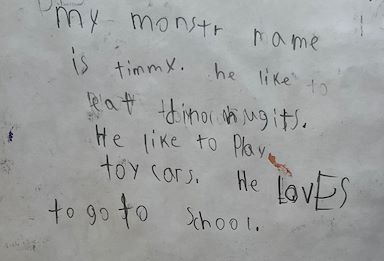 my monstr name
is timmy. he like to
eat dinornugits.
He like to Play
toy cars. He LovES
to go to school.